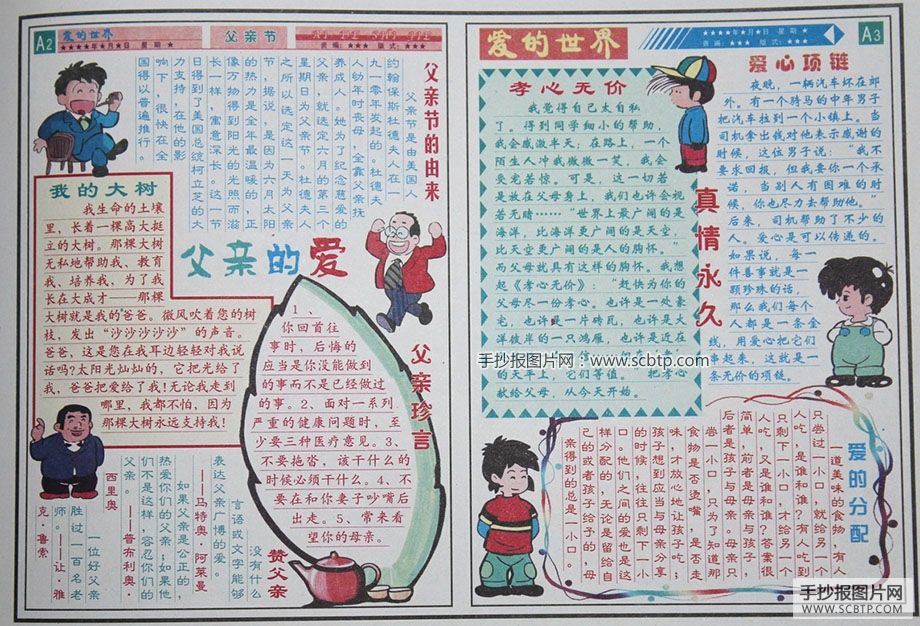 A2
爱的世界
★★★★年★月★日 星 期 ★
父亲节
责编：★★★ 版式：★★★
父亲节的由来
父亲节是由美国人
约翰保斯杜德夫人在一
九一零年发起的。杜德夫
人幼年时丧母，全靠父亲抚
养成人。她为了纪念慈爱的
父亲，就选定六月的第三个
星期日为父亲节。杜德夫人
之所以选定这一天为父亲
节，据说，是因为六月太阳
的热力是全年最温暖的，正
像万物得到阳光的光照而滋
长一样，寓意深长。这一节
日得到了美国总统柯立芝的大
力支持，在他的影
响下，很快在全
国得以普遍推行。
我的大树
我生命的土壤
里，长着一棵高大挺
立的大树。那棵大树
无私地帮助我、教育
我、培养我，为了我
长在大成才——那棵
大树就是我的爸爸。微风吹着您的树
枝，发出“沙沙沙沙沙”的声音。
爸爸，这是您在我耳边轻轻对我说
话吗?太阳光灿灿的，它把光给了
我，爸爸把爱给了我!无论我走到
哪里，我都不怕，因为
那棵大树永远支持我!
父亲的爱
父亲珍言
1、
你回首往
事时，后悔的
应当是你没能做到
的事而不是已经做过
的事。2、面对一系列
严重的健康问题时，至
少要三种医疗意见。3、
不要拖沓，该干什么的
时候必须干什么。4、不
要在和你妻子吵嘴后
出走。5、常来看
望你的母亲。
赞父亲
没有什么
言语或文字能够
表达父亲广博的爱。
——马特奥·阿莱曼
如果父亲是公正的，
热爱你们的父亲；如果他
们不是这样，容忍你们的
父亲。——普布利奥·
西里奥
一位好父亲
胜过一百名老
师。——让·雅
克·鲁索
爱的世界
★★★★年★月★日 星 期 ★
责编：★★★ 版式：★★★
A3
孝心无价
我觉得自己太自私
了。得到同学细小的帮助，
我会感激半天；在路上，一个
陌生人冲我微微一笑，我会
受宠若惊。可是，这一切若
是放在父母身上，我们也许会视
若无睹……“世界上最广阔的是
海洋，比海洋更广阔的是天空，
比天空更广阔的是人的胸怀。”
而父母就具有这样的胸怀。我想
起《孝心无价》：“赶快为你的
父母尽一份孝心。也许是一处豪
宅，也许是一片砖瓦，也许是大
洋彼岸的一只鸿雁，也许是近在
的天平上，它们等值。”把孝心
献给父母，从今天开始。
手抄报图片网：www.scbtp.com
真情永久
爱心项链
夜晚，一辆汽车坏在郊
外。有一个骑马的中年男子
把汽车拉到一个小镇上。当
司机拿出钱对他表示感谢的
时候，这位男子说：“我不
要求回报，但我要你一个承
诺，当别人有困难的时
候，你也尽力去帮助他。”
后来，司机帮助了不少的
人。爱心是可以传递的。
如果说，每一
件善事就是一
颗珍珠的话，
那么我们每个
人都是一条金
线，用爱心把它们
串起来，这就是一
条无价的项链。
爱的分配
一道美味的食物，有人
只尝过一小口，就给另一个
人吃，是谁和谁？有人吃到
只剩下一小口，才给另一个
人吃，又是谁和谁？答案很
简单，前者是母亲与孩子，
后者是孩子与母亲。母亲只
尝一小口，只为了知道那
食物是否烫嘴，是否走
味，才放心地让孩子吃；
孩子想到应当与母亲分享
的时候，往往只剩下一小
口。他们之间的爱也是这
样分配的，无论是留给自
己的或者孩子给予的，母
亲得到的总是一小口。
手抄报图片网
WWW.SCBTP.COM